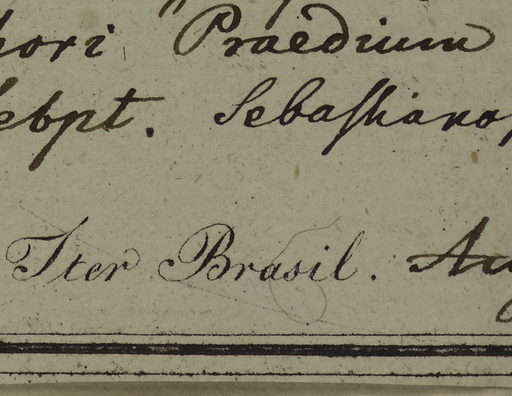 hori Praedium
Sebpt. Sebastiano
Iter Brasil. Au